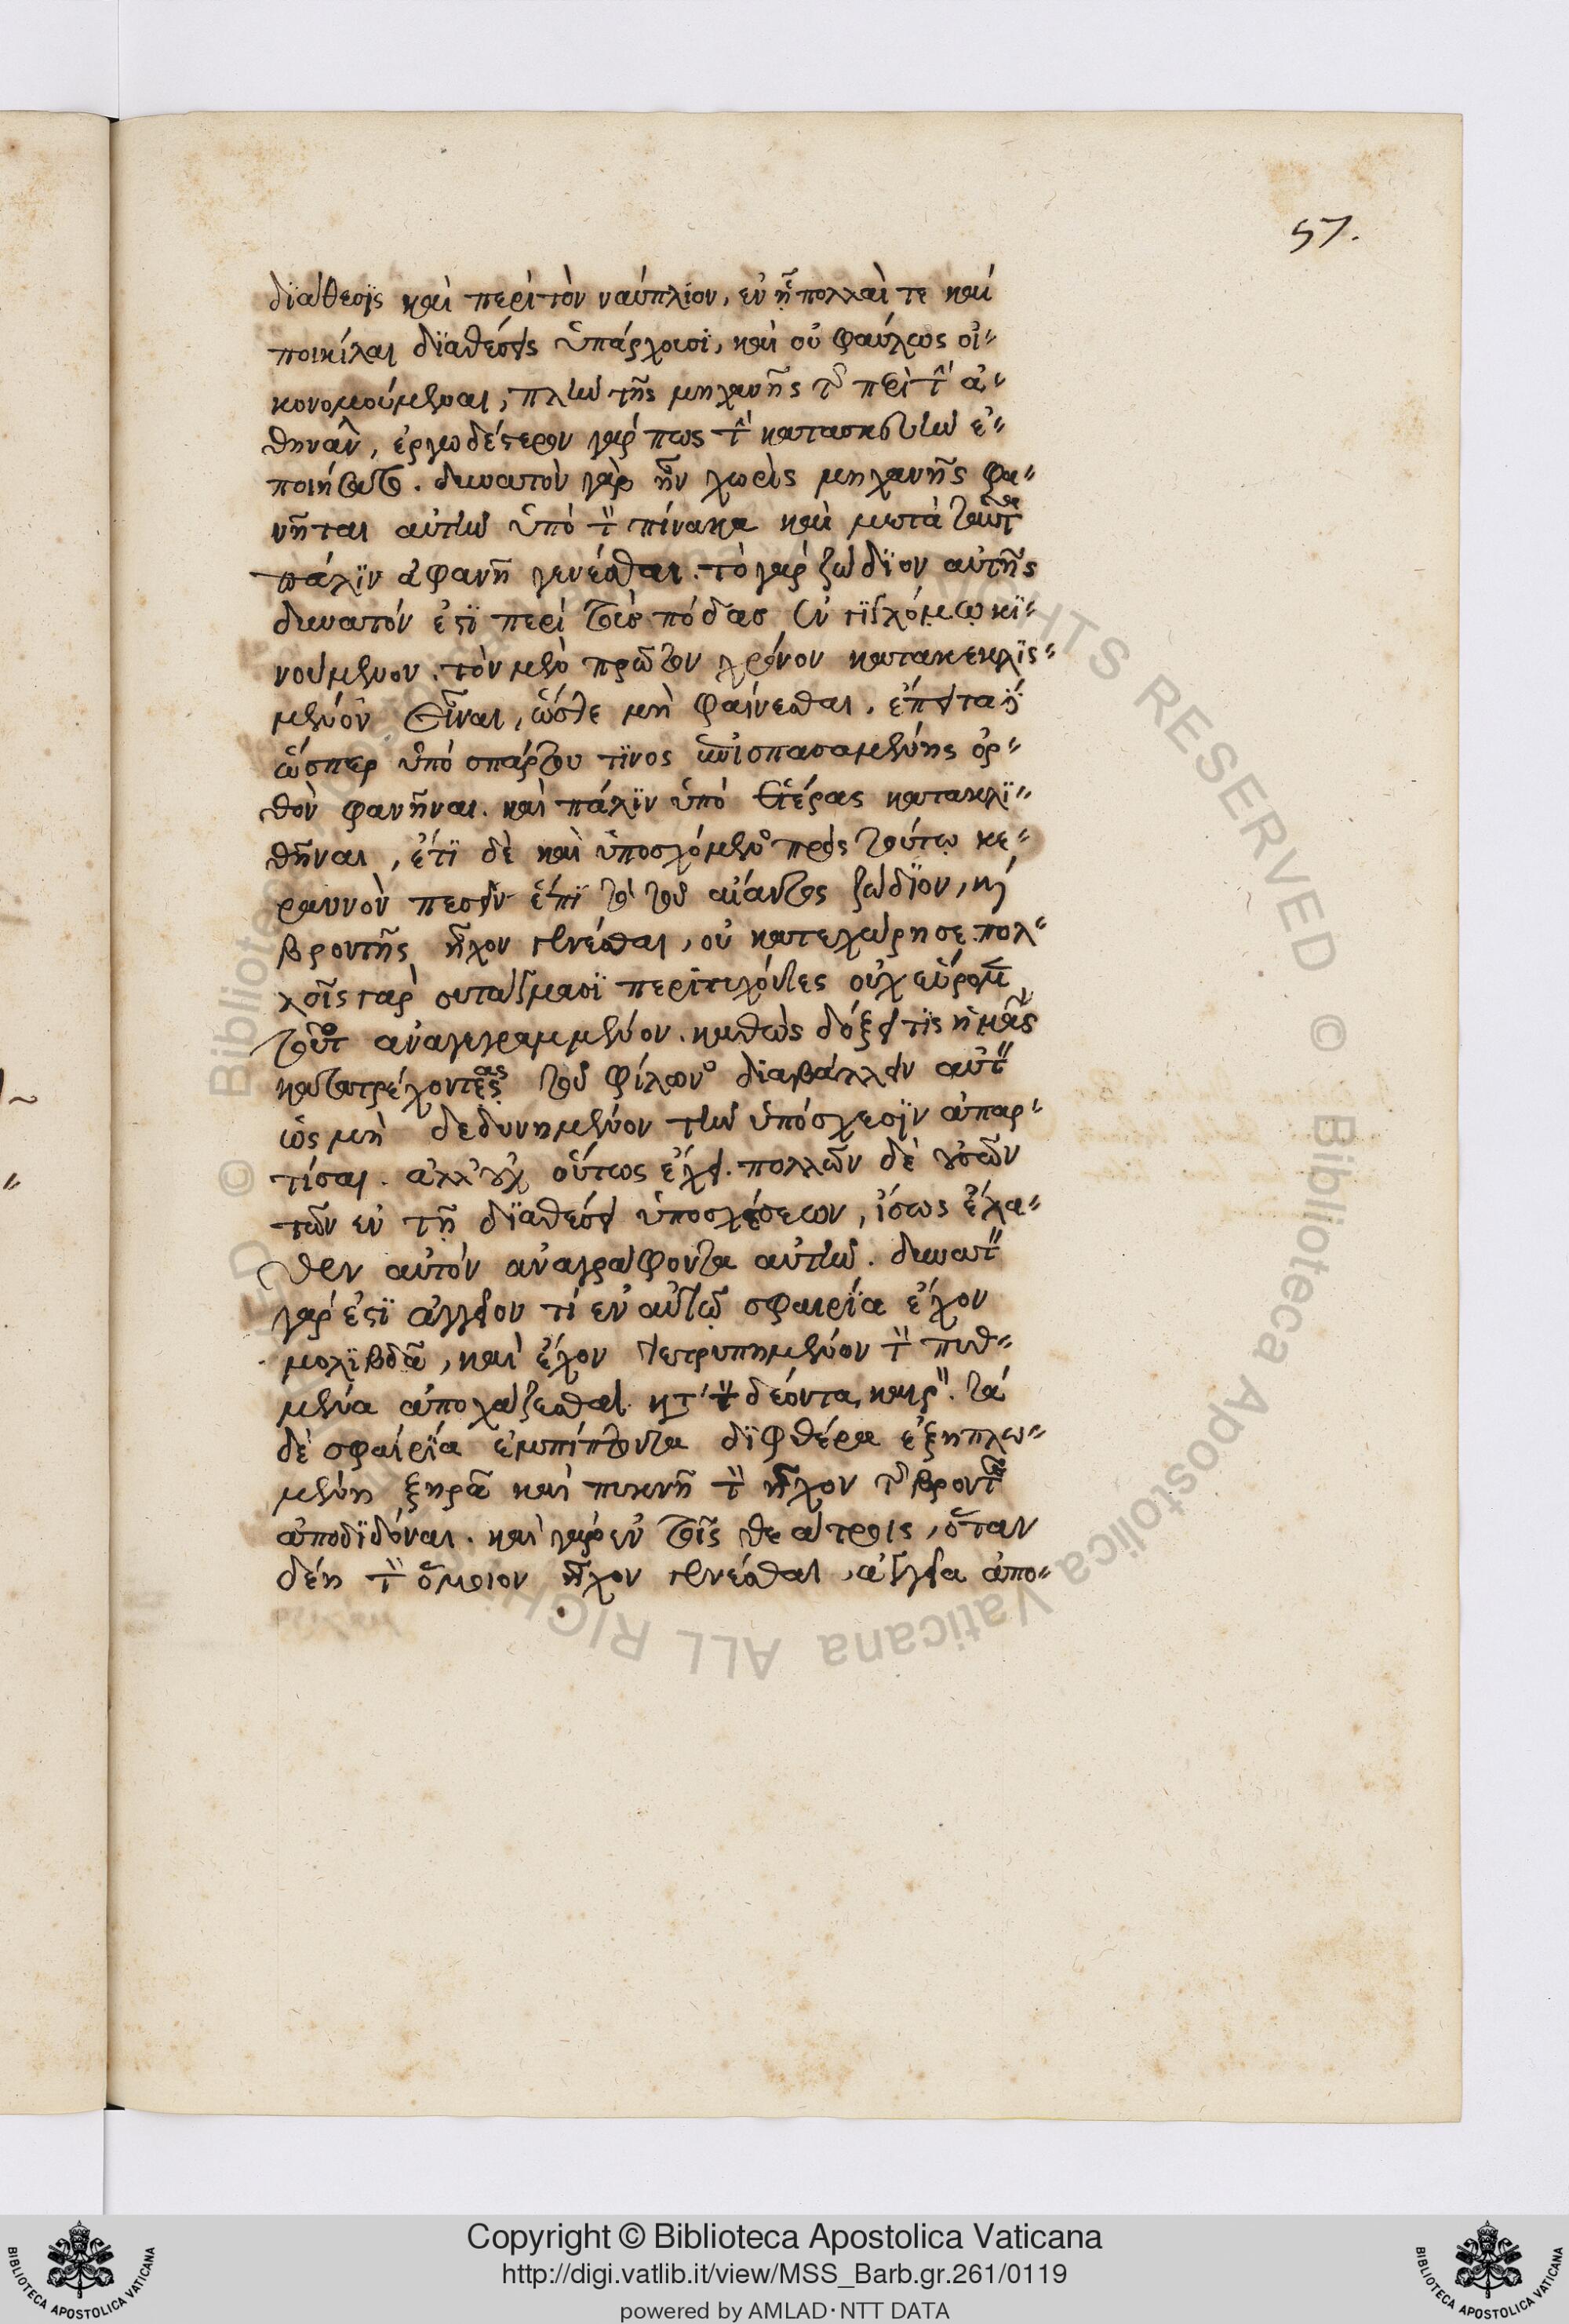 57.
διάθεσϊς καὶ περὶ τὸν ναύπλιον, ἐν ᾗ πολλαί τε καὶ
ποικίλαι διαθέσεις ὑπάρχουσι, καὶ οὐ φαύλως οἰ-
κονομούμεναι, πλὴν τῆς μηχανῆς τῆς περὶ τὴν ἀ-
θηνᾶν, ἐργωδέστερον γάρ πως τὴν κατασκευὴν ἐ-
ποιήσατο. δυνατὸν γὰρ ἦν χωρὶς μηχανῆς φα-
νῆναι αὐτὴν ὑπὸ τὸν πίνακα καὶ μετὰ ταῦτα
πάλιν ἀφανῆ γενέσθαι. τὸ γὰρ ζώδιον αὐτῆς
δυνατόν ἐστι περὶ τοὺς πόδας κι-
νούμενον. τὸν μὲν πρῶτον χρόνον κατακεκλισ-
μένον εἶναι, ὥστε μὴ φαίνεσθαι, ἔπειτα δὲ
ὥσπερ ὑπὸ σπάρτου τινος ἐπισπασαμένης ὀρ-
θὸν φανῆναι. καὶ πάλιν ὑπὸ ἑτέρας κατακλι-
θῆναι, ἔτι δὲ καὶ ὑποσχόμενος πρὸς τούτῳ κε-
ραυνὸν πεσεῖν ἐπὶ τὸ τοῦ αἴαντος ζώδιον, καὶ
βροντῆς ἦχον γενέσθαι, οὐ κατεχώρησε. πολ-
λοῖς γὰρ συντάγμασι περιτυχόντες οὐχ εὕρομεν
τοῦτο ἀναγεγραμμένον. καθὼς δόξει τις ἡμᾶς
κατατρέχοντας τοῦ φίλωνος διαβάλλειν αὐτὸν
ὡς μὴ δεδυνημένον τὴν ὑπόσχεσιν ἀπαρ-
τίσαι. ἀλλ' οὐχ οὕτως ἔχει. πολλῶν δὲ οὐσῶν
τῶν ἐν τῇ διαθέσει ὑποσχέσεων, ἴσως ἔλα-
θεν αὐτὸν ἀναγράφοντα αὐτήν. δυνατὸν
γάρ ἐστι ἀγγεῖον τί ἐν αὐτῷ σφαιρία ἔχον
μολιβδᾶ, καὶ ἔχον τετρυπημένον τὸν πυθ-
μένα ἀποχάζεσθαι κατὰ τὸν δέοντα καιρόν. τὰ
δὲ σφαιρία ἐμπίπτοντα διφθέρα ἐξηπλω-
μένη ξηρᾷ καὶ πυκνῇ τὸν ἦχον τῆς βροντῆς
ἀποδιδόναι. καὶ γὰρ ἐν τοῖς θεάτροις, ὅταν
δέῃ τὸν ὅμοιον ἦχον γενέσθαι, ἀγγεῖα ἀπο-
© Biblioteca Apostolica Vaticana ALL RIGHTS RESERVED
Copyright © Biblioteca Apostolica Vaticana
http://digi.vatlib.it/view/MSS_Barb.gr.261/0119
powered by AMLAD·NTT DATA
BIBLIOTECA APOSTOLICA VATICANA
BIBLIOTECA APOSTOLICA VATICANA